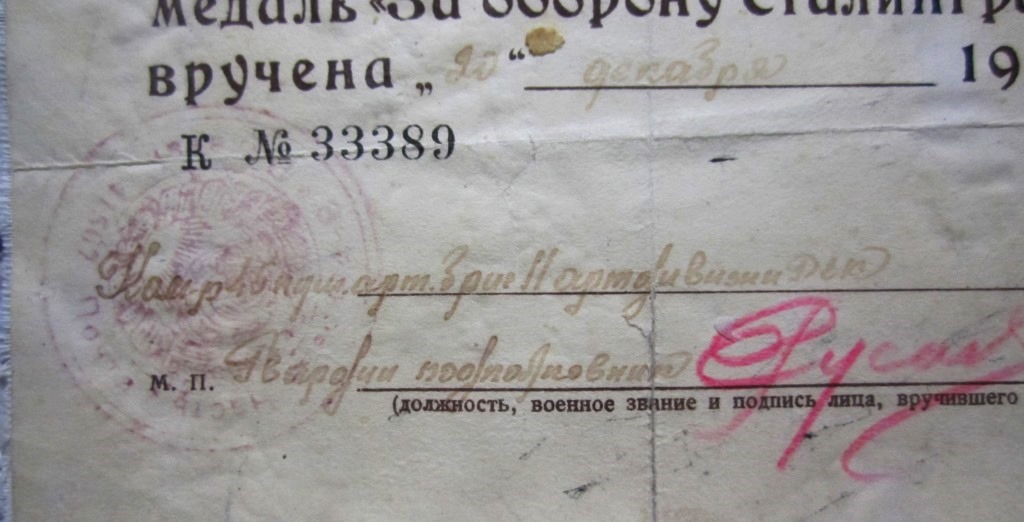 медаль «За оборону Сталингра
вручена „20“ декабря 19
К № 33389
арт. бриг 11 артдивизии
Гвардии подполковник
М. П.
(должность, военное звание и подпись лица, вручившего